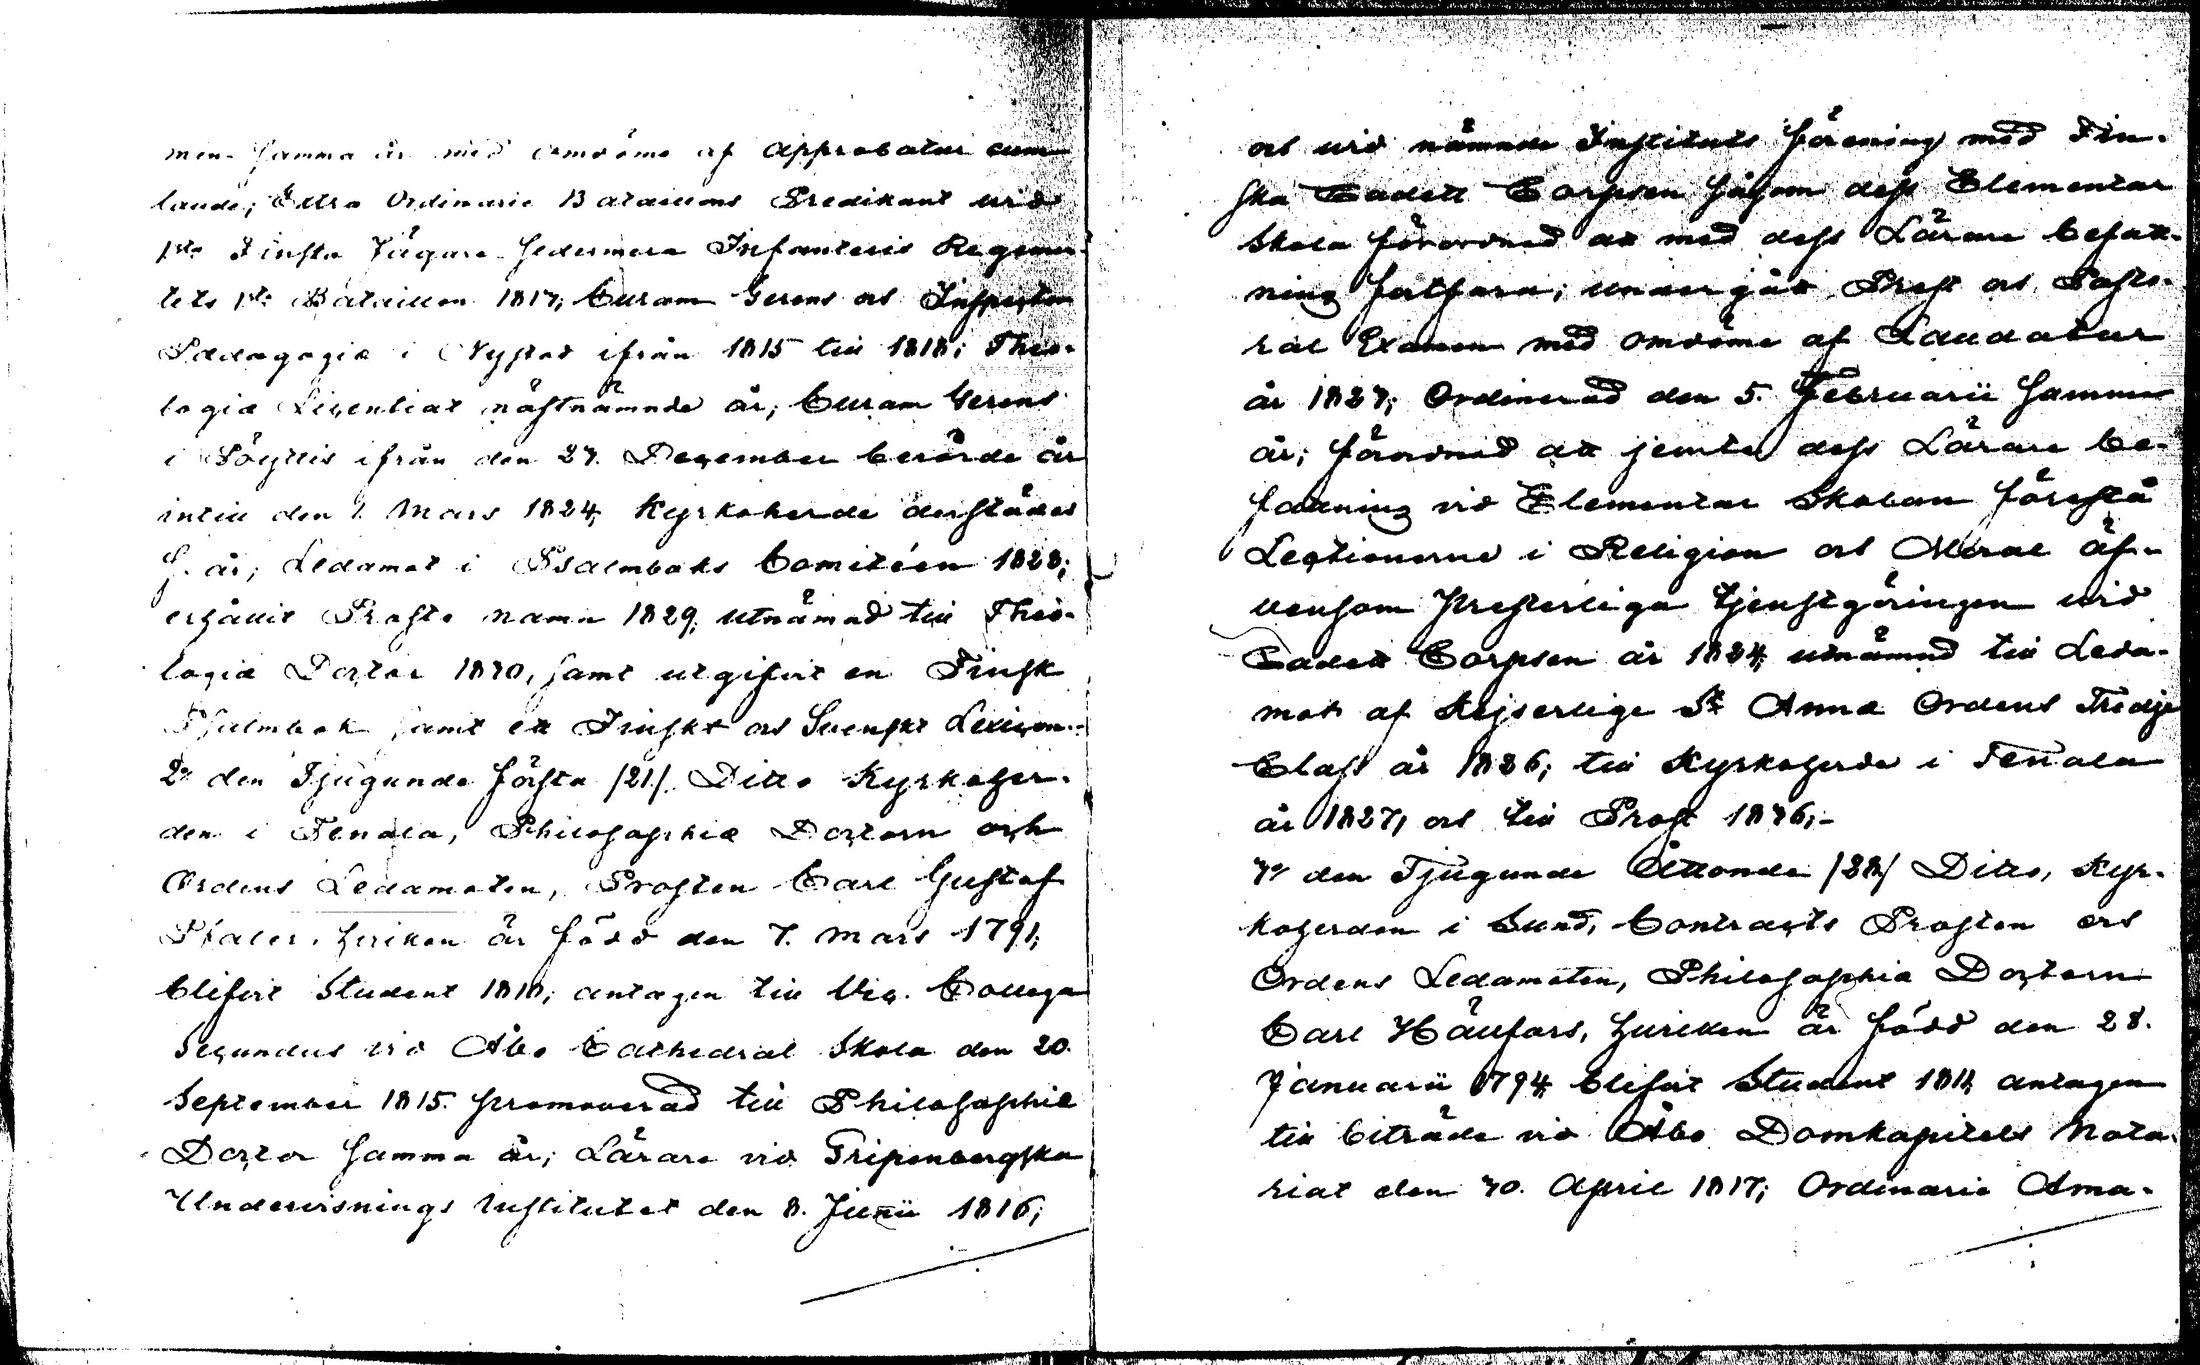 men samma år med omdöme af approbatur cum
laude; Extra Ordinarie Bataillons Predikant wid
1sta Finska Jägare sedermera Infanterie Regemen-
tets 1sta Bataillon 1817; Curam Gerens och Inspector
Pædagogiæ i Nystad ifrån 1815 till 1818; Theo-
logiæ Licentiat nästnämnde år; Curam Gerens
i Pöyttis ifrån den 27. December berörde år
intill den 1. Mars 1824, Kyrkoherde derstädes
s. år; Ledamot i Psalmboks Comitéen 1828;
erhållit Prosts namn 1829; utnämnd till Theo-
logiæ Doctor 1830, samt utgifvit en Finsk
Psalmbok samt ett Finskt och Svenskt Lexicon.-
2o den Tjugunde första /21/. Ditto Kyrkoher-
den i Tenala, Philosophiæ Doctorn och
Ordens Ledamoten, Prosten Carl Gustaf
hvilken är född den 7. Mars 1791;
blifvit Student 1810; antagen till Vic. Collega
Secundus vid Åbo Cathedral Skola den 20.
September 1815. promoverad till Philosophiæ
Doctor samma år; Lärare vid Gripenbergska
Undervisnings Institutet den 8. Junii 1816;
och wid nämnde Instituts förening med Fin-
ska Cadett Corpsen såsom dess Elementar
Skola förordnad att med dess Lärare befatt-
ning fortfara; undergått Prest och Pasto-
ral Examen med omdöme af Laudatur
år 1823; Ordinerad den 5. Februarii samma
år; förordnad att jemte dess Lärare be-
fattning vid Elementar Skolan förestå
Lectionerne i Religion och Moral äf-
vensom presterliga tjenstgöringen wid
Cadett Corpsen år 1824; utnämnd till Leda-
mot af Kejserlige St Annæ Ordens Tredje
Class år 1826; till Kyrkoherde i Tenala
år 1827, och till Prost 1836;-
3o den Tjugunde Åttonde /28/ Ditto, Kyr-
koherden i Sund, Contracts Prosten och
Ordens Ledamoten, Philosophiæ Doctorn
Carl Hällfors, hvilken är född den 28.
Januarii 1794; blifvit Student 1811, antagen
till biträde vid Åbo Domkapitels Nota-
riat den 30. April 1817; Ordinarie Ama-